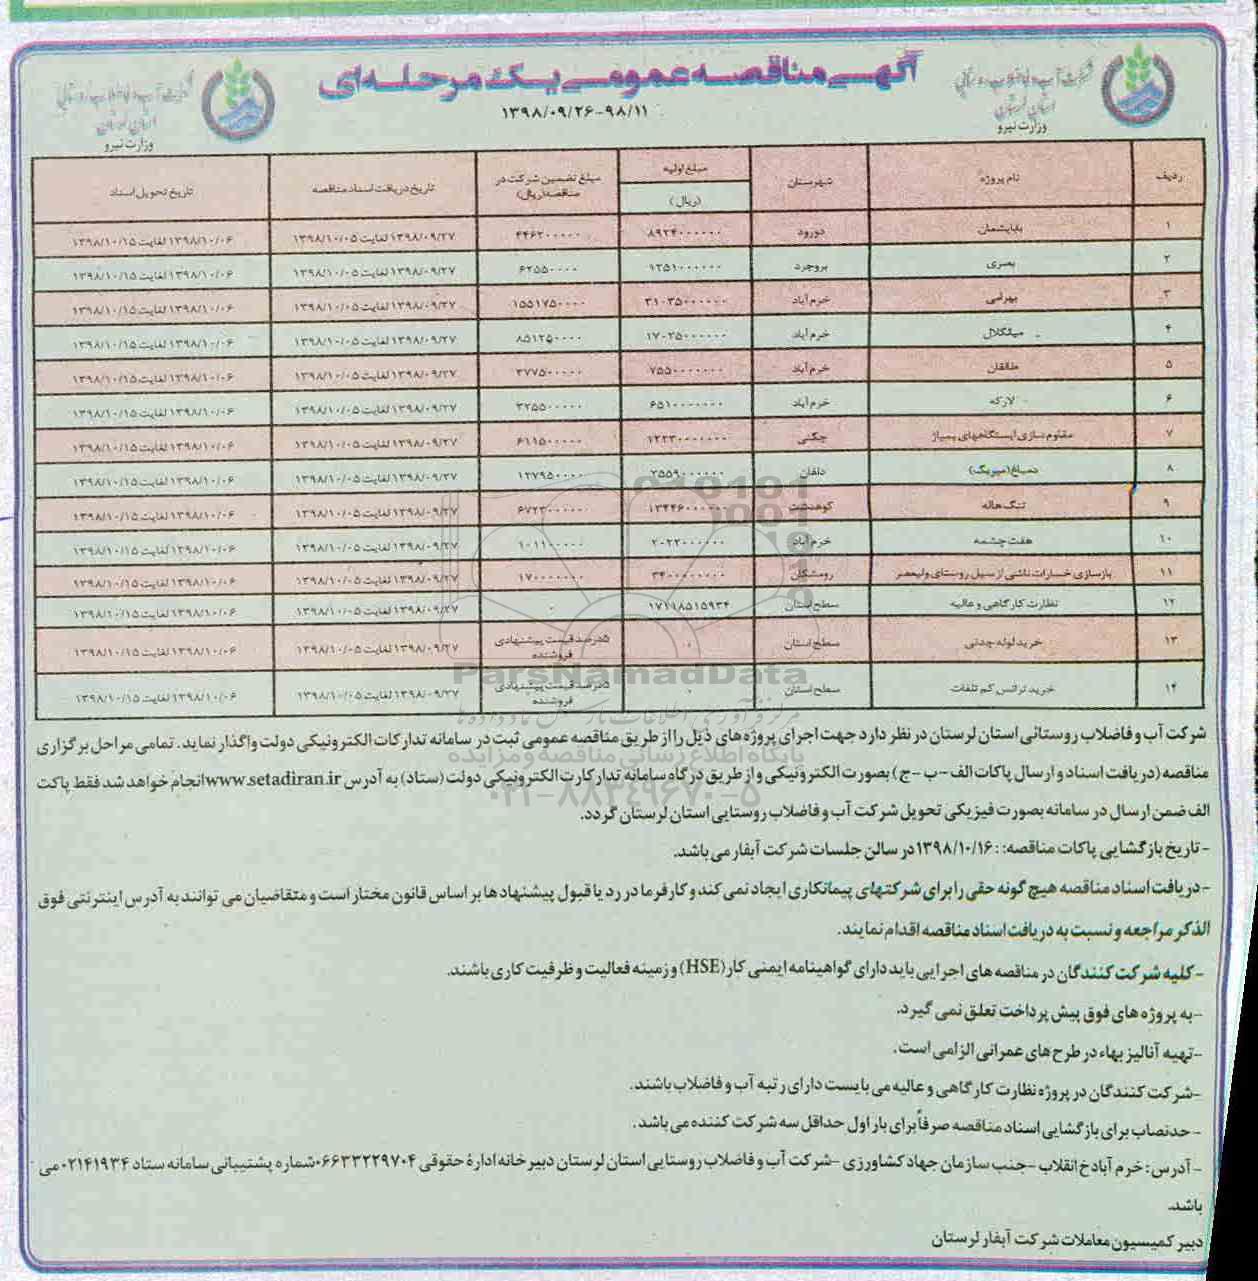 آگهی مناقصه عمومی یک مرحله‌ای
۱۳۹۸/۰۹/۲۶-۹۸/۱۱
وزارت نیرو
وزارت نیرو
ردیف	نام پروژه	شهرستان	مبلغ اولیه (ریال)	مبلغ تضمین شرکت در مناقصه (ریال)	تاریخ دریافت اسناد مناقصه	تاریخ تحویل اسناد
۱	بابایشمان	دورود	۸۹۲۴۰۰۰۰۰۰	۴۴۶۲۰۰۰۰۰	۱۳۹۸/۰۹/۲۷ لغایت ۱۳۹۸/۱۰/۰۵	۱۳۹۸/۱۰/۰۶ لغایت ۱۳۹۸/۱۰/۱۵
۲	بصری	بروجرد	۱۲۵۱۰۰۰۰۰۰	۶۲۵۵۰۰۰۰	۱۳۹۸/۰۹/۲۷ لغایت ۱۳۹۸/۱۰/۰۵	۱۳۹۸/۱۰/۰۶ لغایت ۱۳۹۸/۱۰/۱۵
۳	بهرامی	خرم آباد	۳۱۰۳۵۰۰۰۰۰۰	۱۵۵۱۷۵۰۰۰۰	۱۳۹۸/۰۹/۲۷ لغایت ۱۳۹۸/۱۰/۰۵	۱۳۹۸/۱۰/۰۶ لغایت ۱۳۹۸/۱۰/۱۵
۴	میانگلال	خرم آباد	۱۷۰۲۵۰۰۰۰۰۰	۸۵۱۲۵۰۰۰۰	۱۳۹۸/۰۹/۲۷ لغایت ۱۳۹۸/۱۰/۰۵	۱۳۹۸/۱۰/۰۶ لغایت ۱۳۹۸/۱۰/۱۵
۵	طالقان	خرم آباد	۷۵۵۰۰۰۰۰۰۰	۳۷۷۵۰۰۰۰۰	۱۳۹۸/۰۹/۲۷ لغایت ۱۳۹۸/۱۰/۰۵	۱۳۹۸/۱۰/۰۶ لغایت ۱۳۹۸/۱۰/۱۵
۶	لارکه	خرم آباد	۶۵۱۰۰۰۰۰۰۰	۳۲۵۵۰۰۰۰۰	۱۳۹۸/۰۹/۲۷ لغایت ۱۳۹۸/۱۰/۰۵	۱۳۹۸/۱۰/۰۶ لغایت ۱۳۹۸/۱۰/۱۵
۷	مقاوم سازی ایستگاههای پمپاژ	چگنی	۱۲۲۳۰۰۰۰۰۰۰	۶۱۱۵۰۰۰۰۰	۱۳۹۸/۰۹/۲۷ لغایت ۱۳۹۸/۱۰/۰۵	۱۳۹۸/۱۰/۰۶ لغایت ۱۳۹۸/۱۰/۱۵
۸	دلفان	۲۵۵۹۰۰۰۰۰۰	۱۲۷۹۵۰۰۰۰	۱۳۹۸/۰۹/۲۷ لغایت ۱۳۹۸/۱۰/۰۵	۱۳۹۸/۱۰/۰۶ لغایت ۱۳۹۸/۱۰/۱۵
۹	تنگ هاله	کوهدشت	۱۳۴۴۶۰۰۰۰۰۰	۶۷۲۳۰۰۰۰۰	۱۳۹۸/۰۹/۲۷ لغایت ۱۳۹۸/۱۰/۰۵	۱۳۹۸/۱۰/۰۶ لغایت ۱۳۹۸/۱۰/۱۵
۱۰	هفت چشمه	خرم آباد	۲۰۲۲۰۰۰۰۰۰	۱۰۱۱۰۰۰۰۰	۱۳۹۸/۰۹/۲۷ لغایت ۱۳۹۸/۱۰/۰۵	۱۳۹۸/۱۰/۰۶ لغایت ۱۳۹۸/۱۰/۱۵
۱۱	بازسازی خسارات ناشی از سیل روستای ولیعصر	رومشکان	۳۴۰۰۰۰۰۰۰۰	۱۷۰۰۰۰۰۰۰	۱۳۹۸/۰۹/۲۷ لغایت ۱۳۹۸/۱۰/۰۵	۱۳۹۸/۱۰/۰۶ لغایت ۱۳۹۸/۱۰/۱۵
۱۲	نظارت کارگاهی و عالیه	سطح استان	۱۷۱۱۸۵۱۵۹۳۴	۰	۱۳۹۸/۰۹/۲۷ لغایت ۱۳۹۸/۱۰/۰۵	۱۳۹۸/۱۰/۰۶ لغایت ۱۳۹۸/۱۰/۱۵
۱۳	خرید لوله چدنی	سطح استان	۰	۵درصد قیمت پیشنهادی فروشنده	۱۳۹۸/۰۹/۲۷ لغایت ۱۳۹۸/۱۰/۰۵	۱۳۹۸/۱۰/۰۶ لغایت ۱۳۹۸/۱۰/۱۵
۱۴	خرید ترانس کم تلفات	سطح استان	۰	۵درصد قیمت پیشنهادی فروشنده	۱۳۹۸/۰۹/۲۷ لغایت ۱۳۹۸/۱۰/۰۵	۱۳۹۸/۱۰/۰۶ لغایت ۱۳۹۸/۱۰/۱۵
ParsNamadData
پایگاه اطلاع رسانی مناقصه و مزایده
۰۲۱-۸۸۳۴۹۶۷۰-۵
شرکت آب و فاضلاب روستائی استان لرستان در نظر دارد جهت اجرای پروژه های ذیل را از طریق مناقصه عمومی ثبت در سامانه تدارکات الکترونیکی دولت واگذار نماید. تمامی مراحل برگزاری
مناقصه (دریافت اسناد و ارسال پاکات الف - ب - ج) بصورت الکترونیکی و از طریق درگاه سامانه تدارکارت الکترونیکی دولت (ستاد) به آدرس www.setadiran.ir انجام خواهد شد فقط پاکت
الف ضمن ارسال در سامانه بصورت فیزیکی تحویل شرکت آب و فاضلاب روستایی استان لرستان گردد.
- تاریخ بازگشایی پاکات مناقصه: : ۱۳۹۸/۱۰/۱۶ در سالن جلسات شرکت آبفار می باشد.
- دریافت اسناد مناقصه هیچ گونه حقی را برای شرکتهای پیمانکاری ایجاد نمی کند و کارفرما در رد یا قبول پیشنهادها بر اساس قانون مختار است و متقاضیان می توانند به آدرس اینترنتی فوق
الذکر مراجعه و نسبت به دریافت اسناد مناقصه اقدام نمایند.
- کلیه شرکت کنندگان در مناقصه های اجرایی باید دارای گواهینامه ایمنی کار (HSE) و زمینه فعالیت و ظرفیت کاری باشند.
- به پروژه های فوق پیش پرداخت تعلق نمی گیرد.
- تهیه آنالیز بهاء در طرح های عمرانی الزامی است.
- شرکت کنندگان در پروژه نظارت کارگاهی و عالیه می بایست دارای رتبه آب و فاضلاب باشند.
- حدنصاب برای بازگشایی اسناد مناقصه صرفاً برای بار اول حداقل سه شرکت کننده می باشد.
- آدرس: خرم آباد خ انقلاب - جنب سازمان جهاد کشاورزی - شرکت آب و فاضلاب روستایی استان لرستان دبیرخانه ادارهٔ حقوقی ۰۶۶۳۳۲۲۹۷۰۴ شماره پشتیبانی سامانه ستاد ۰۲۱۴۱۹۳۴ می
باشد.
دبیر کمیسیون معاملات شرکت آبفار لرستان